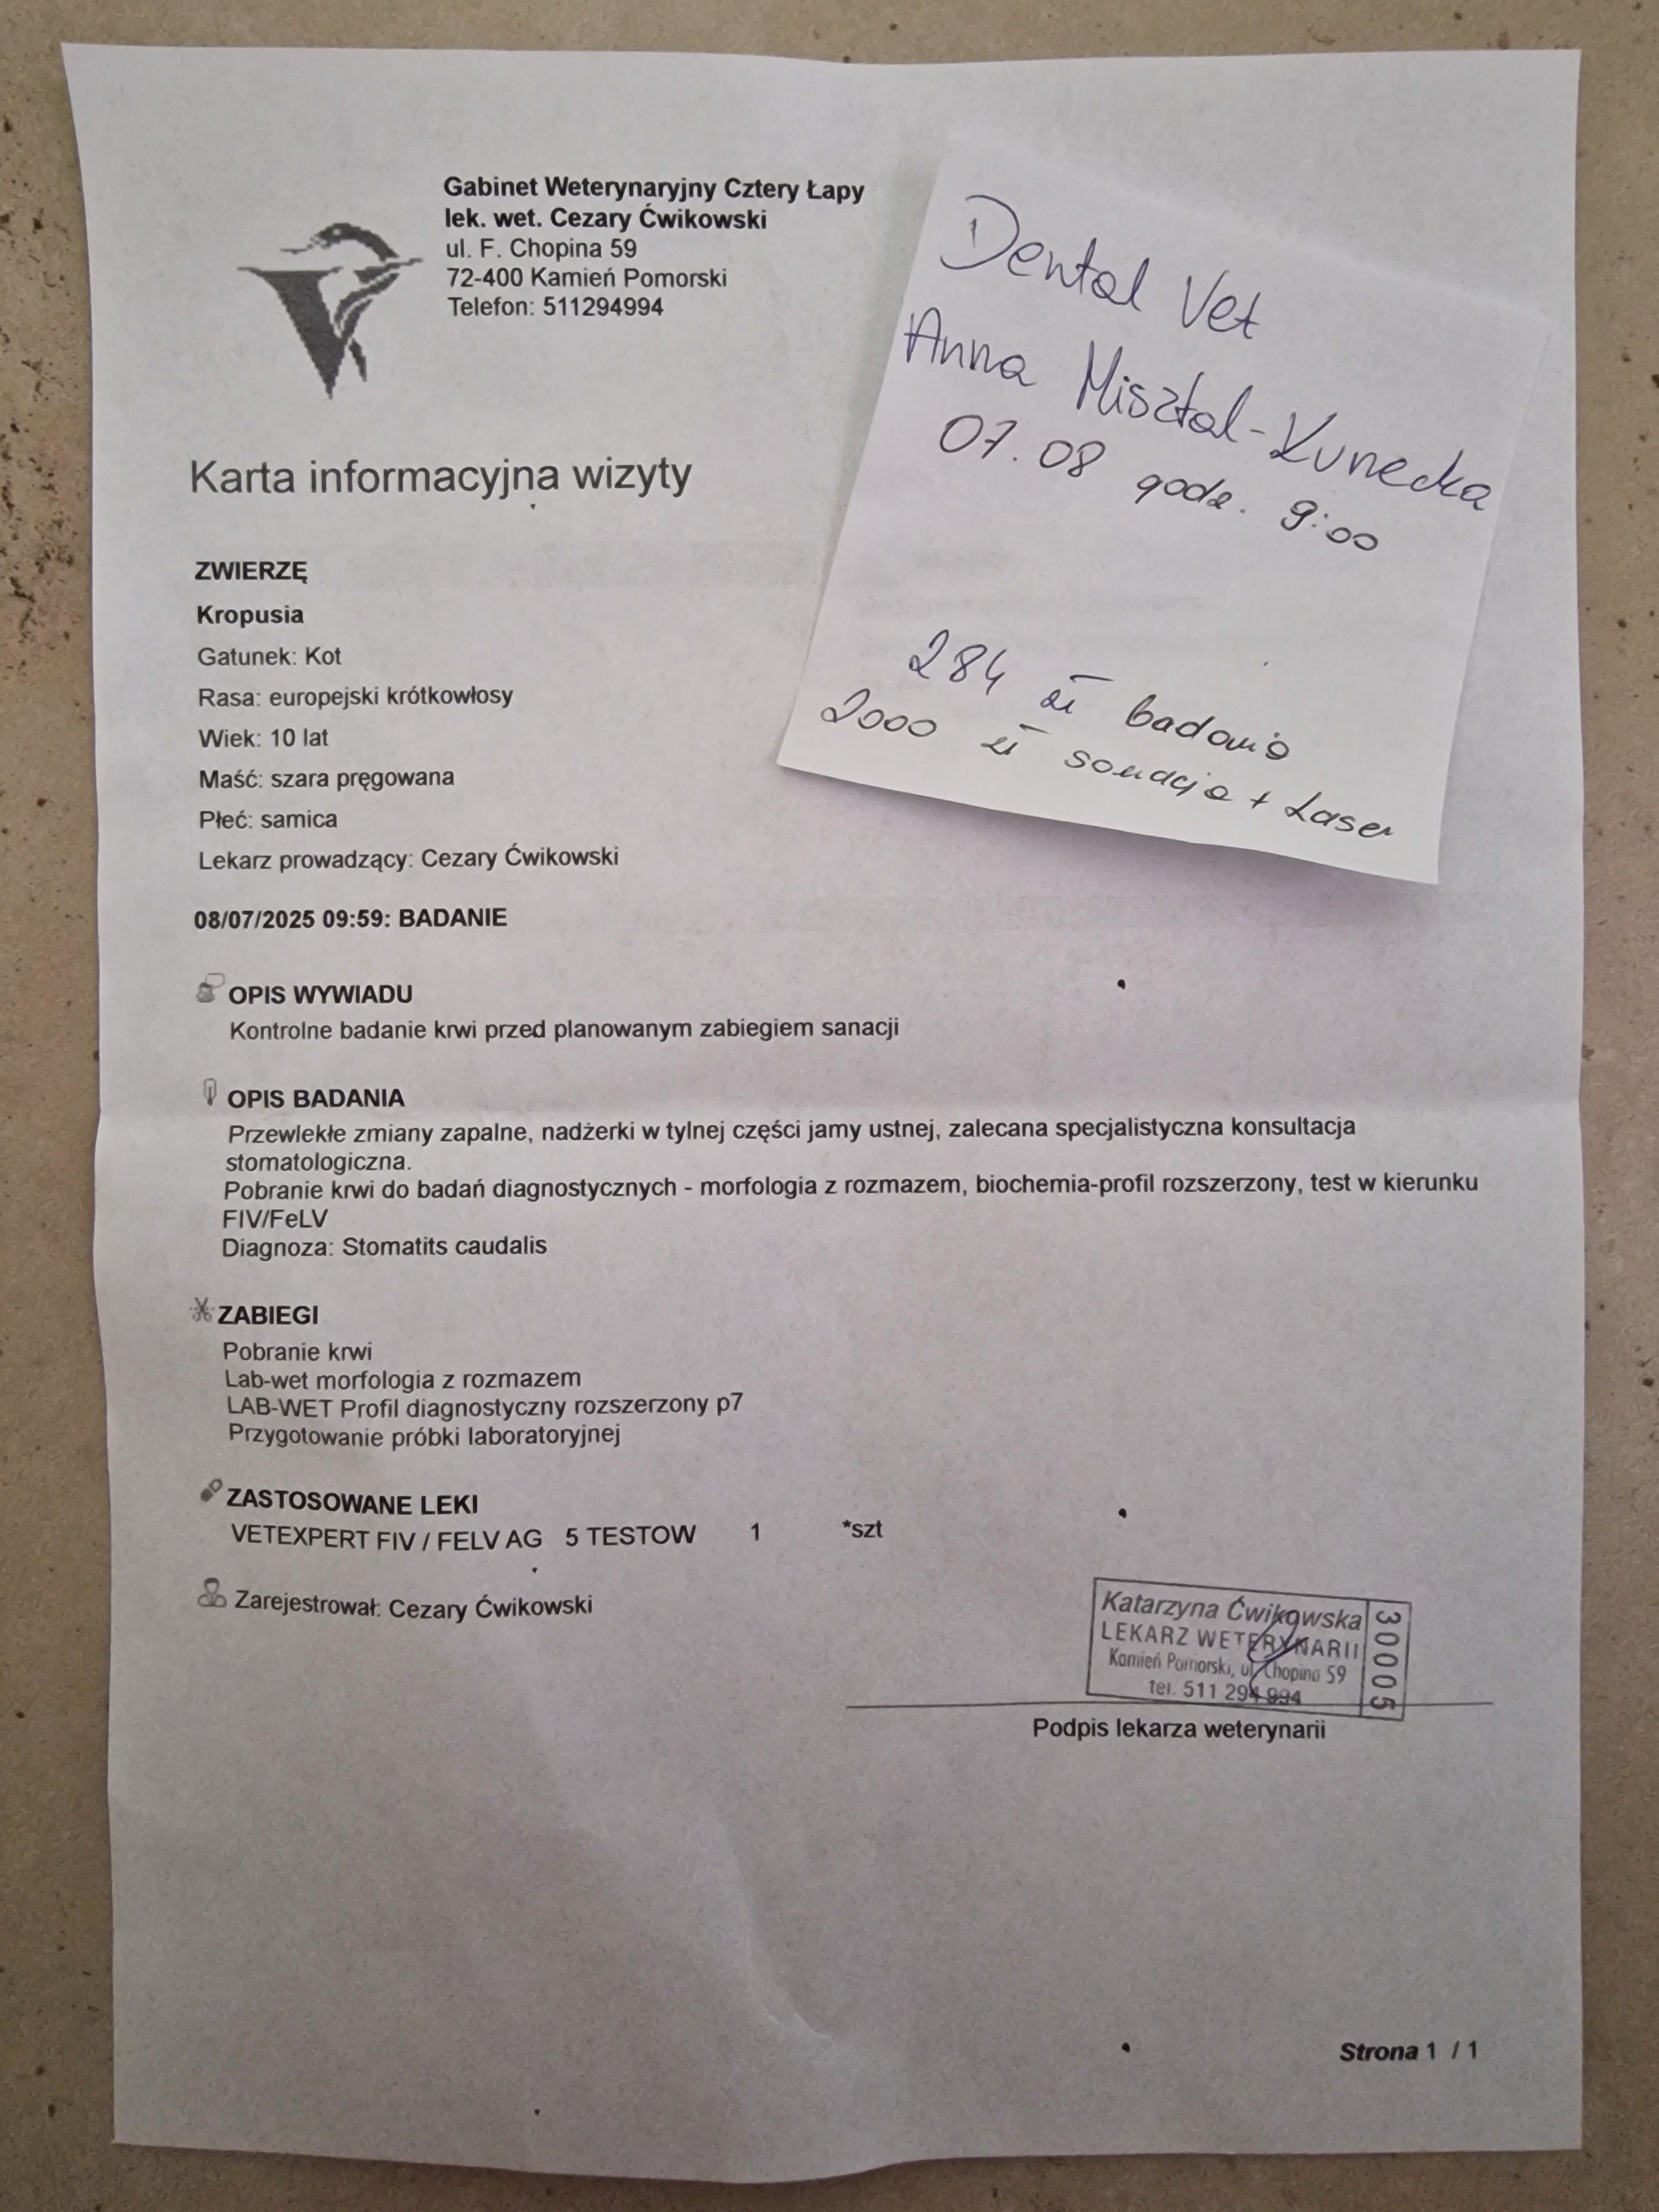 Gabinet Weterynaryjny Cztery Łapy
lek. wet. Cezary Ćwikowski
ul. F. Chopina 59
72-400 Kamień Pomorski
Telefon: 511294994
Dental Vet
Anna Misztal-Kunecka
07.08 godz. 9:00
284 zł badania
2000 zł sanacja + Laser
Karta informacyjna wizyty
ZWIERZĘ
Kropusia
Gatunek: Kot
Rasa: europejski krótkowłosy
Wiek: 10 lat
Maść: szara pręgowana
Płeć: samica
Lekarz prowadzący: Cezary Ćwikowski
08/07/2025 09:59: BADANIE
OPIS WYWIADU
Kontrolne badanie krwi przed planowanym zabiegiem sanacji
OPIS BADANIA
Przewlekłe zmiany zapalne, nadżerki w tylnej części jamy ustnej, zalecana specjalistyczna konsultacja
stomatologiczna.
Pobranie krwi do badań diagnostycznych - morfologia z rozmazem, biochemia-profil rozszerzony, test w kierunku
FIV/FeLV
Diagnoza: Stomatits caudalis
ZABIEGI
Pobranie krwi
Lab-wet morfologia z rozmazem
LAB-WET Profil diagnostyczny rozszerzony p7
Przygotowanie próbki laboratoryjnej
ZASTOSOWANE LEKI
VETEXPERT FIV / FELV AG 5 TESTOW 1 *szt
Zarejestrował: Cezary Ćwikowski
Katarzyna Ćwikowska
LEKARZ WETERYNARII
Kamień Pomorski, ul. Chopina 59
tel. 511 294 994
30005
Podpis lekarza weterynarii
Strona 1 / 1